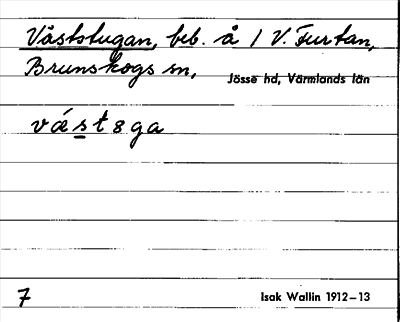 Väststugan, beb. å 1 V. Furtan,
Brunskogs sn,
Jösse hd, Värmlands län
vǽstsga
7
Isak Wallin 1912–13